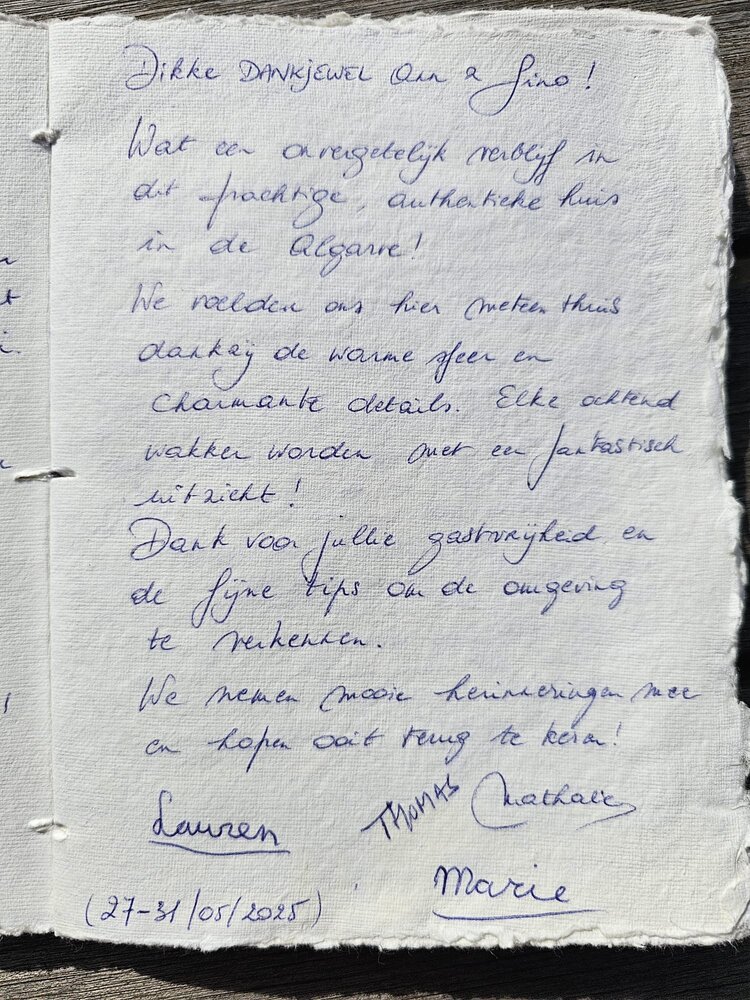 Dikke DANKJEWEL Ann & Gino!
Wat een onvergetelijk verblijf in
dit prachtige, authentieke huis
in de Algarve!
We voelden ons hier meteen thuis
dankzij de warme sfeer en
charmante details. Elke ochtend
wakker worden met een fantastisch
uitzicht!
Dank voor jullie gastvrijheid en
de fijne tips om de omgeving
te verkennen.
We nemen mooie herinneringen mee
en hopen ooit terug te keren!
Lauren THOMAS Nathalie
Marie
(27-31/05/2025)